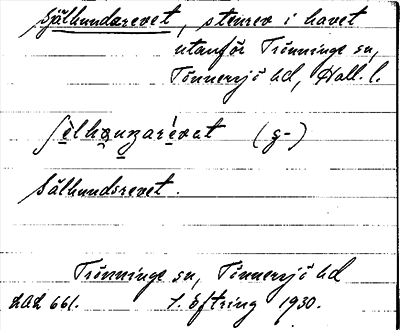 Själhundsrevet, stenrev i havet
utanför Trönninge sn,
Tönnersjö hd, Hall. l.
(g-)
Sälhundsrevet.
Trönninge sn, Tönnersjö hd
LAL 661. J. Öftring 1930.